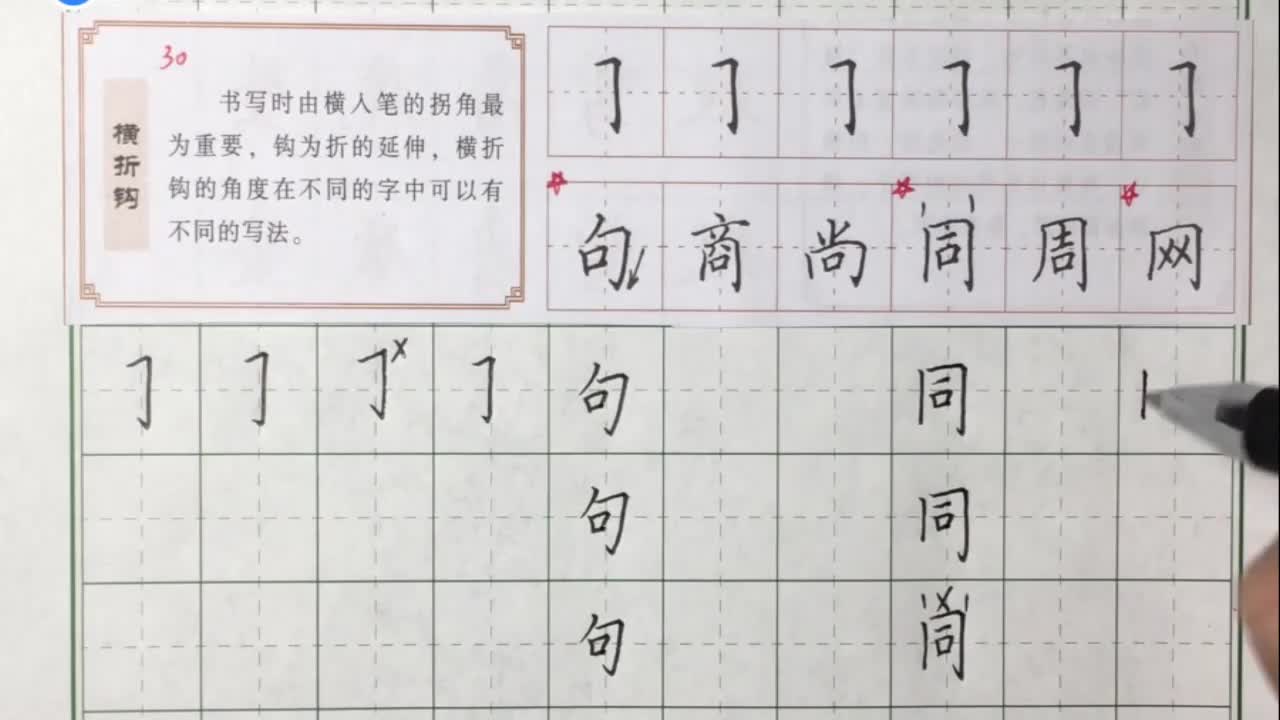 30
横折钩
书写时由横入笔的拐角最
为重要，钩为折的延伸，横折
钩的角度在不同的字中可以有
不同的写法。
㇆ ㇆ ㇆ ㇆ ㇆ ㇆
句 商 尚 同 周 网
㇆ ㇆ ㇆ x ㇆ 句 同 丨
句 同
句 同 x